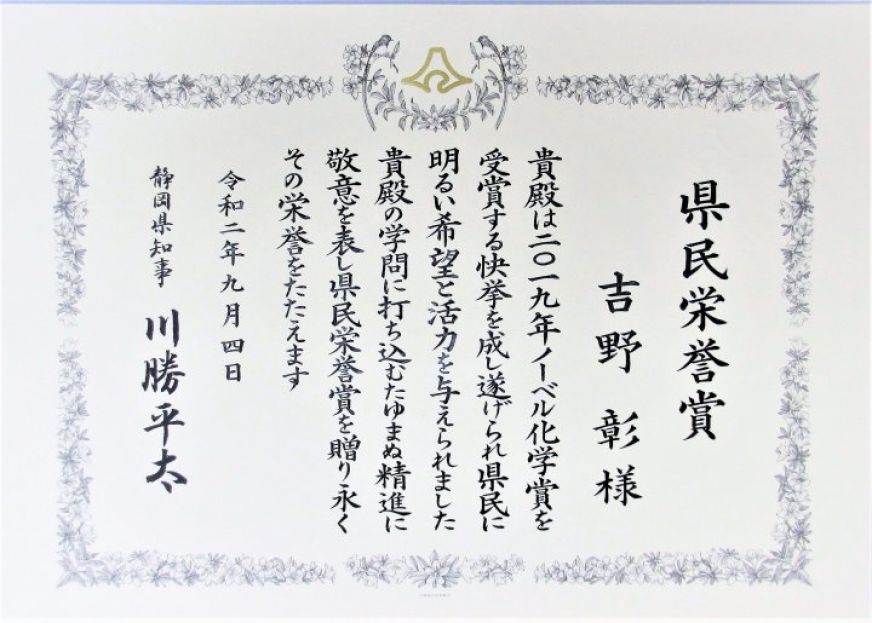 県民栄誉賞
吉野 彰 様
貴殿は二〇一九年ノーベル化学賞を
受賞する快挙を成し遂げられ県民に
明るい希望と活力を与えられました
貴殿の学問に打ち込むたゆまぬ精進に
敬意を表し県民栄誉賞を贈り永く
その栄誉をたたえます
令和二年九月四日
静岡県知事 川勝平太